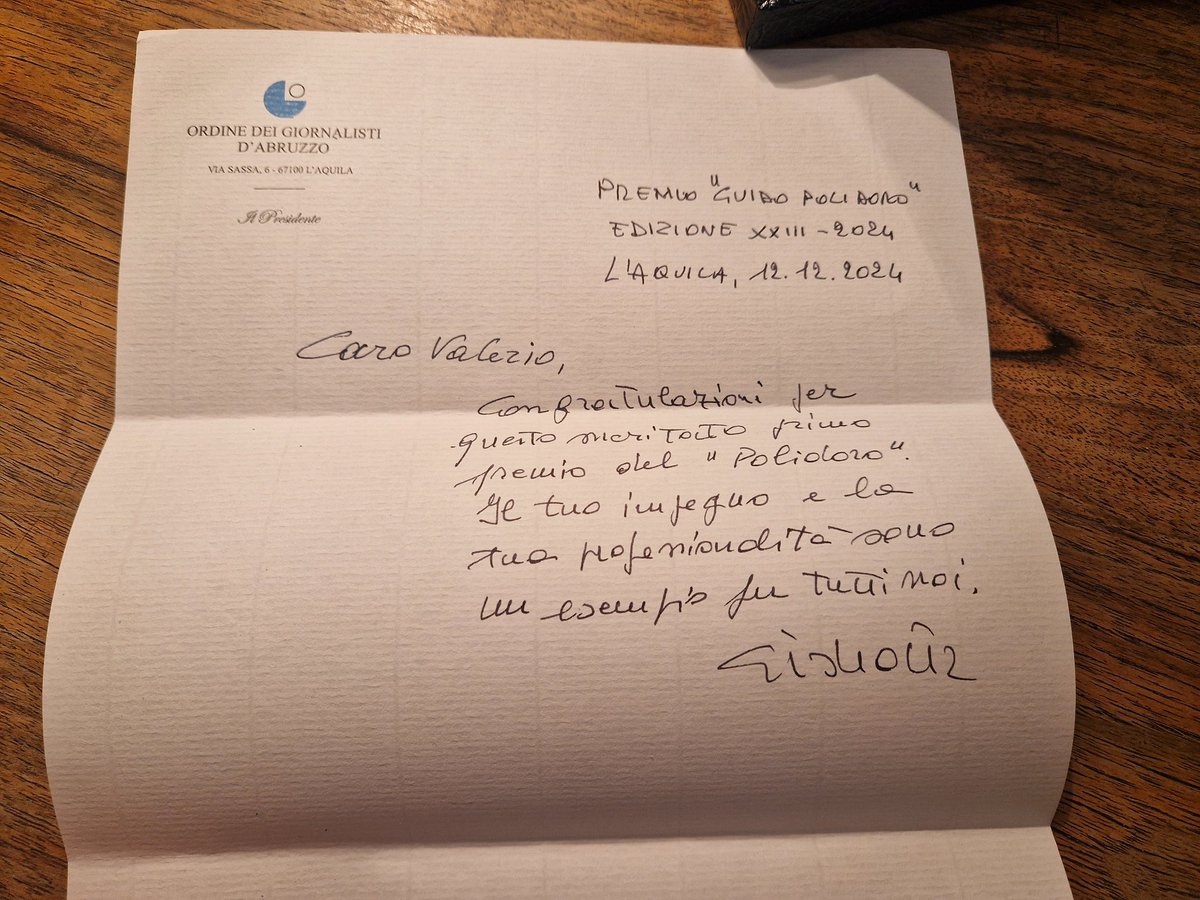 ORDINE DEI GIORNALISTI
D'ABRUZZO
VIA SASSA, 6 - 67100 L'AQUILA
Il Presidente
PREMIO "GUIDO POLIDORO"
EDIZIONE XXIII - 2024
L'AQUILA, 12.12.2024
Caro Valerio,
Congratulazioni per
questo meritato primo
premio del "Polidoro".
Il tuo impegno e la
tua professionalità sono
un esempio per tutti noi.